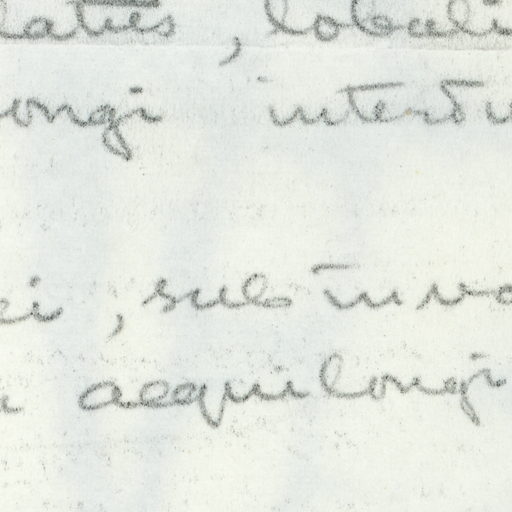 latus, lobali
ongi interdu
ei, sub invo
aequilongi